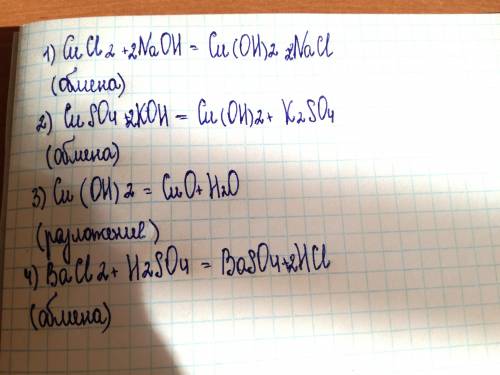 1) CuCl2 +2NaOH = Cu(OH)2 2NaCl
(обмена)
2) CuSO4+2KOH = Cu(OH)2+ K2SO4
(обмена)
3) Cu(OH)2 = CuO+H2O
(разложение)
4) BaCl2+ H2SO4 = BaSO4+2HCl
(обмена)